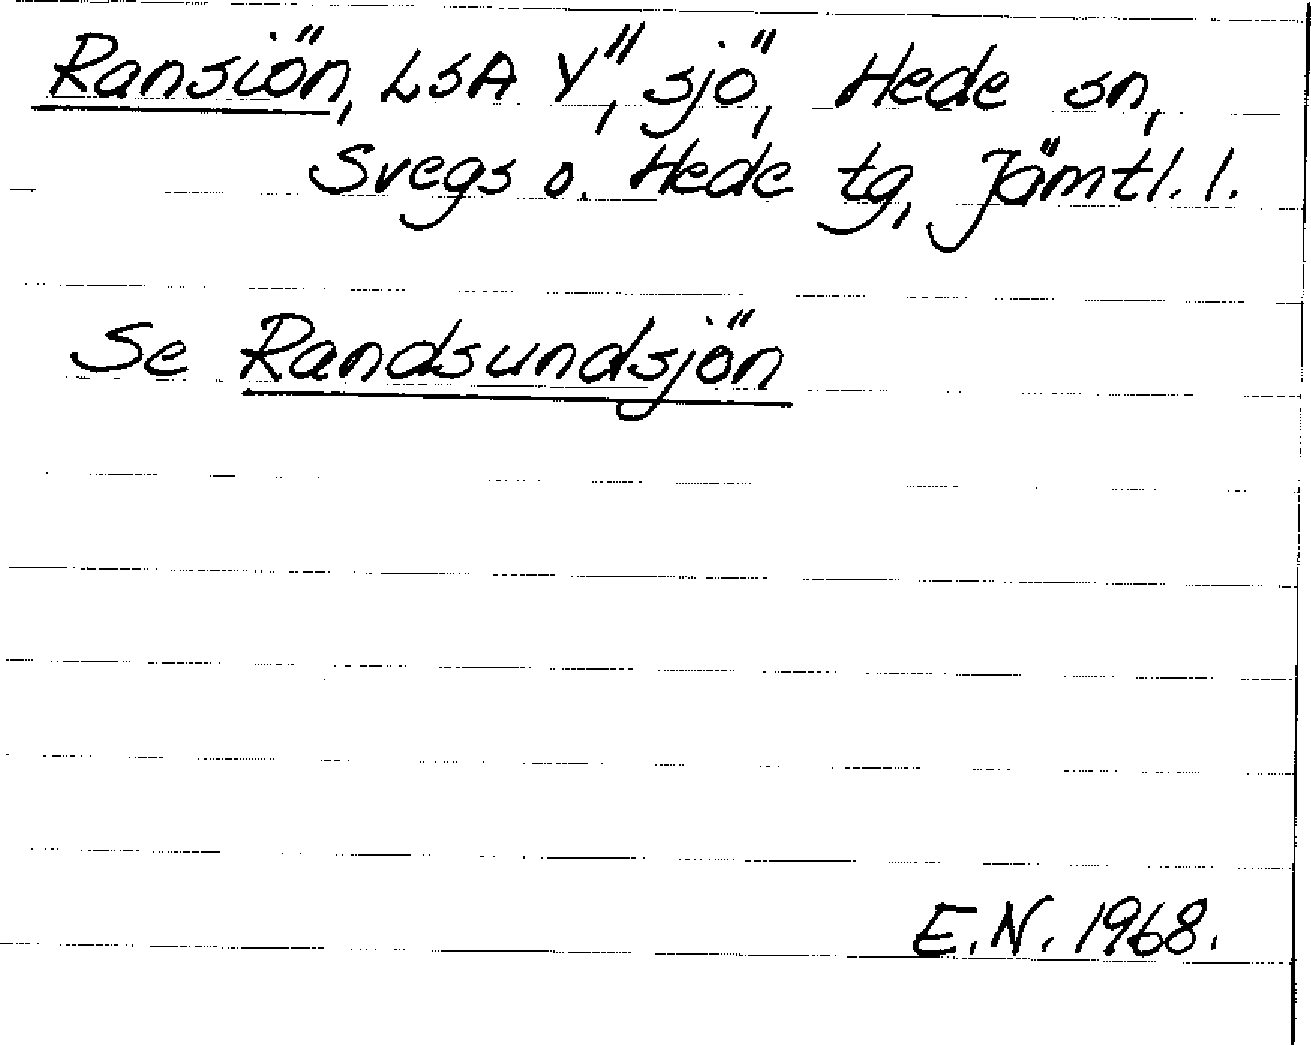 Ransiön, LSA Y", sjö, Hede sn,
Svegs o. Hede tg, Jämtl. l.
Se Randsundsjön
E.N. 1968.